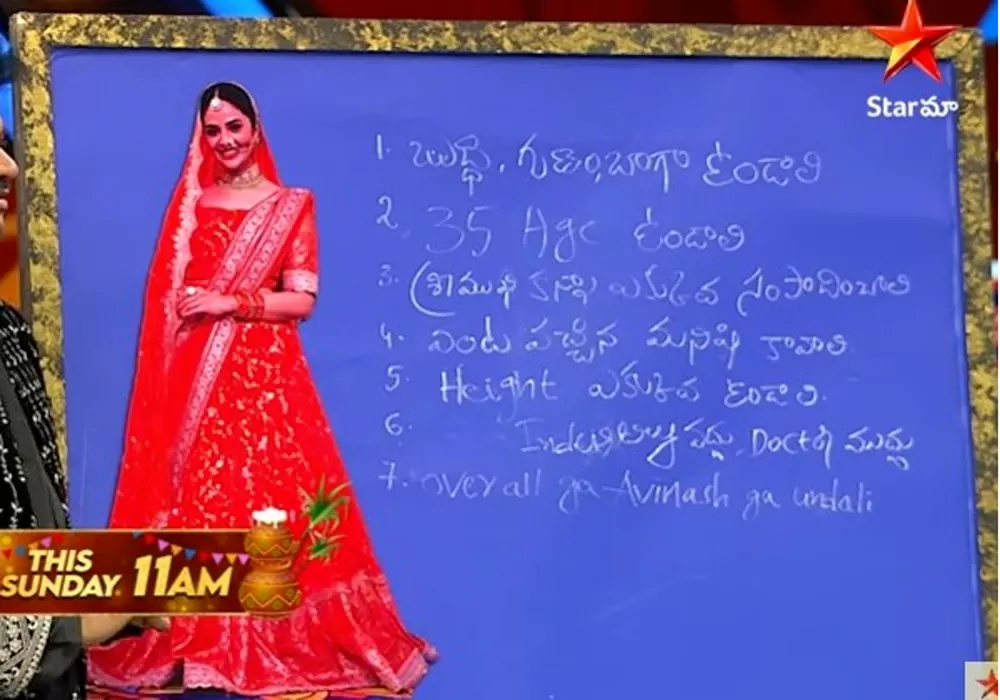 Starమా
1. బుద్ధి, గుణం,బాగా ఉండాలి
2. 35 Age ఉండాలి
3. శ్రీముఖి కన్నా ఎక్కువ సంపాదించాలి
4. పచ్చిన మనిషి కావాలి
5. Height ఎక్కువ ఉండాలి.
6. వద్దు, Doctor ముద్దు
7. overall ga Avinash ga undali
THIS
SUNDAY 11AM